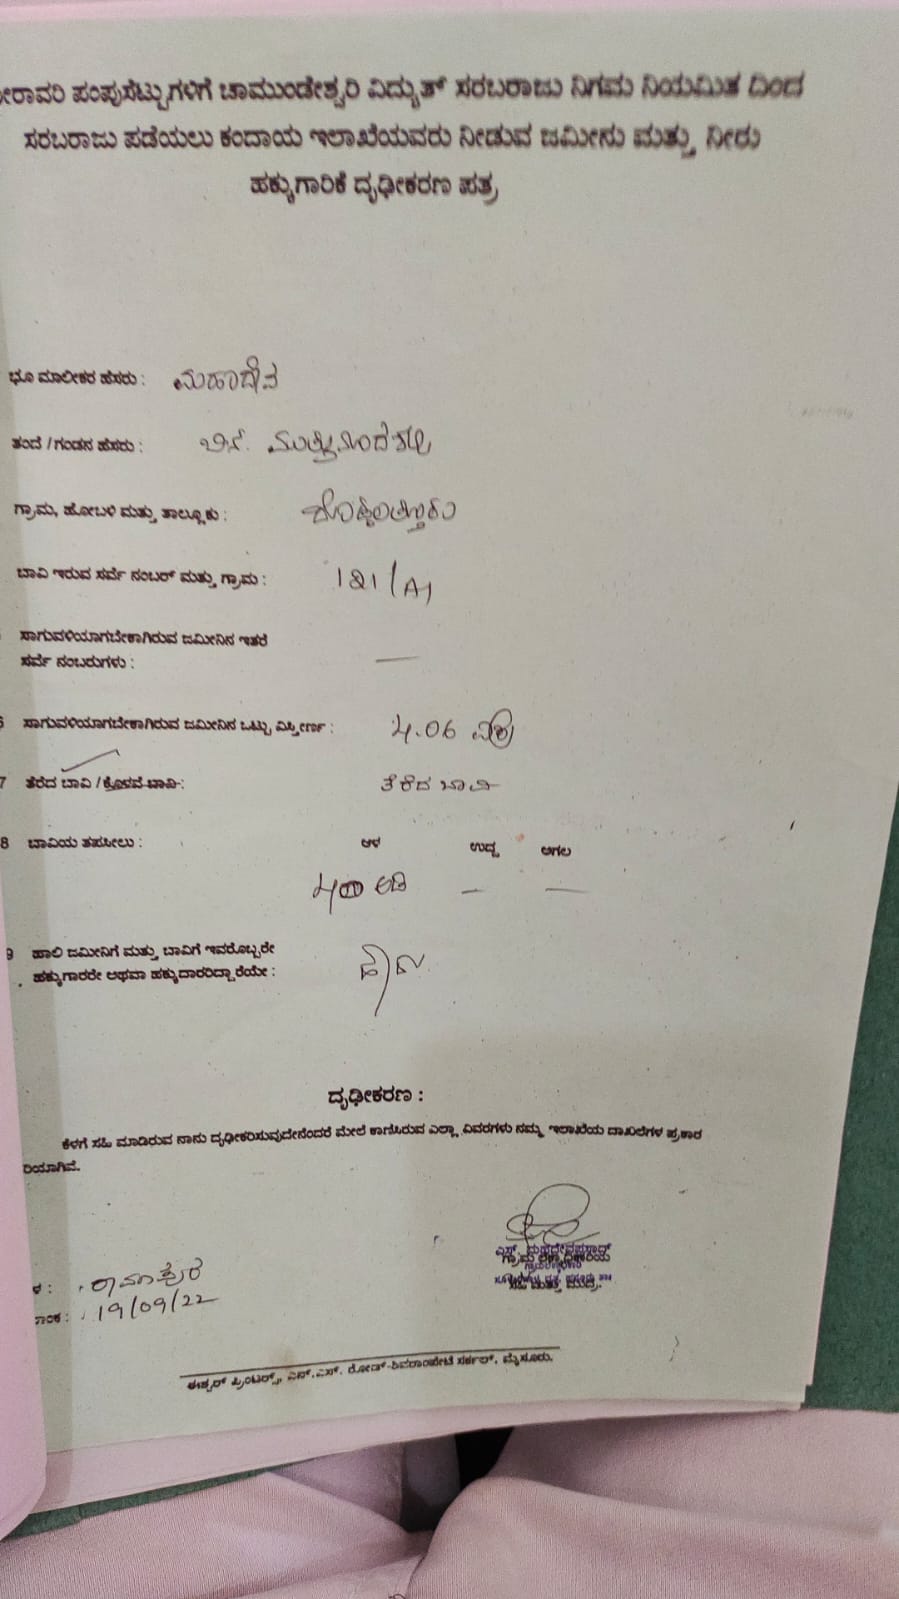 ನೀರಾವರಿ ಪಂಪುಸೆಟ್ಟುಗಳಿಗೆ ಚಾಮುಂಡೇಶ್ವರಿ ವಿದ್ಯುತ್ ಸರಬರಾಜು ನಿಗಮ ನಿಯಮಿತ ದಿಂದ
ಸರಬರಾಜು ಪಡೆಯಲು ಕಂದಾಯ ಇಲಾಖೆಯವರು ನೀಡುವ ಜಮೀನು ಮತ್ತು ನೀರು
ಹಕ್ಕುಗಾರಿಕೆ ದೃಢೀಕರಣ ಪತ್ರ
ಭೂ ಮಾಲೀಕರ ಹೆಸರು : ಮಹಾದೇವ
ತಂದೆ /ಗಂಡನ ಹೆಸರು : ಬಿನ್.
ಗ್ರಾಮ, ಹೋಬಳಿ ಮತ್ತು ತಾಲ್ಲೂಕು :
ಬಾವಿ ಇರುವ ಸರ್ವೆ ನಂಬರ್ ಮತ್ತು ಗ್ರಾಮ : 121/A1
ಸಾಗುವಳಿಯಾಗಬೇಕಾಗಿರುವ ಜಮೀನಿನ ಇತರೆ
ಸರ್ವೆ ನಂಬರುಗಳು : —
6 ಸಾಗುವಳಿಯಾಗಬೇಕಾಗಿರುವ ಜಮೀನಿನ ಒಟ್ಟು ವಿಸ್ತೀರ್ಣ : 4.06
7 ತೆರೆದ ಬಾವಿ /ಕೊಳವೆ ಬಾವಿ : ತೆರೆದ ಬಾವಿ
8 ಬಾವಿಯ ತಪಸೀಲು : ಆಳ ಉದ್ದ ಅಗಲ
ಅಡಿ — —
9 ಹಾಲಿ ಜಮೀನಿಗೆ ಮತ್ತು ಬಾವಿಗೆ ಇವರೊಬ್ಬರೇ
ಹಕ್ಕುಗಾರರೇ ಅಥವಾ ಹಕ್ಕುದಾರರಿದ್ದಾರೆಯೇ : ಹೌದು
ದೃಢೀಕರಣ :
ಕೆಳಗೆ ಸಹಿ ಮಾಡಿರುವ ನಾನು ದೃಢೀಕರಿಸುವುದೇನೆಂದರೆ ಮೇಲೆ ಕಾಣಿಸಿರುವ ಎಲ್ಲಾ ವಿವರಗಳು ನಮ್ಮ ಇಲಾಖೆಯ ದಾಖಲೆಗಳ ಪ್ರಕಾರ
ರಿಯಾಗಿವೆ.
ಗ್ರಾಮ ಲೆಕ್ಕಾಧಿಕಾರಿಯ
ಸಹಿ ಮತ್ತು ಮುದ್ರೆ.
ಳ : ರಾಮಾಪುರ
ನಾಂಕ : 19/09/22
ಈಶ್ವರ್ ಪ್ರಿಂಟರ್ಸ್, ಎನ್.ಎಸ್. ರೋಡ್-ಶಿವರಾಂಪೇಟೆ ಸರ್ಕಲ್, ಮೈಸೂರು.